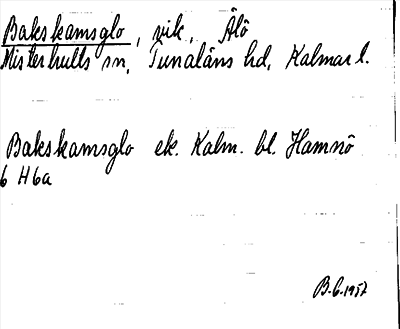 Bakskamsglo, vik, Älö
Misterhults sn, Tunaläns hd, Kalmar l.
Bakskamsglo ek. Kalm. bl. Hamnö
6 H 6a
B.G. 1957